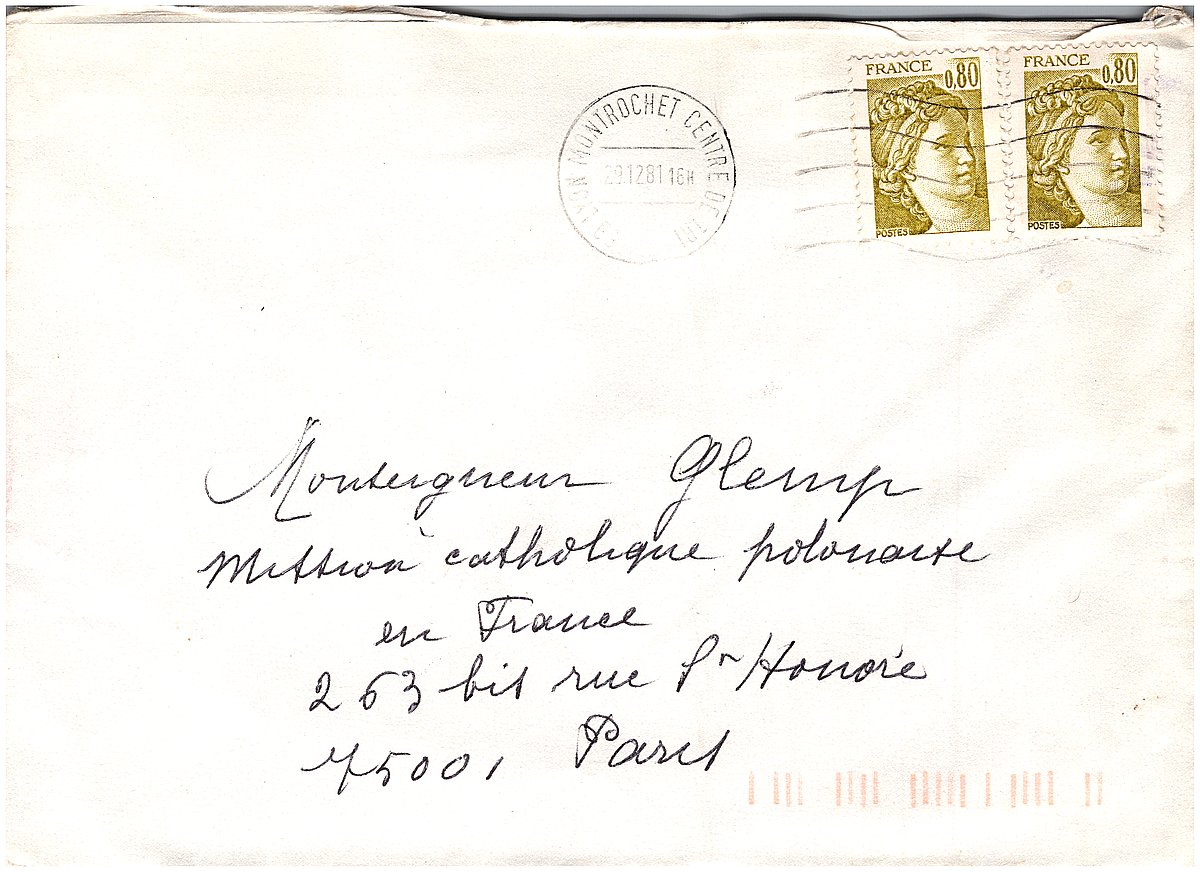 FRANCE 0,80
POSTES
FRANCE 0,80
POSTES
69 LYON MONTROCHET CENTRE DE TRI
29 12 81 16H
Monseigneur Glemp
Mission catholique polonaise
en France
263 bis rue St Honoré
75001 Paris